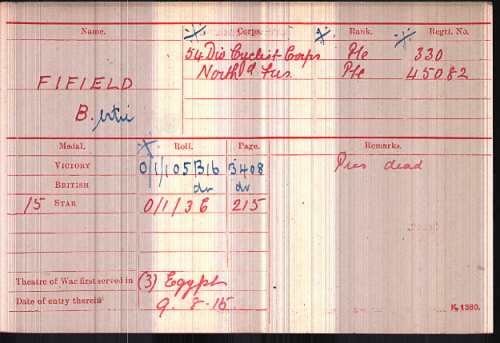 Name. Corps. Rank. Regtl. No.
54 Div Cyclist Corps Pte 330
North'd Fus. Pte 45082
FIFIELD
B.ertie
Medal. Roll. Page. Remarks.
VICTORY 0/1/105B16 3408 Pres dead
BRITISH do do
15 STAR 0/1/3C 215
Theatre of War first served in (3) Egypt
Date of entry therein 9.8.15. K. 1380.